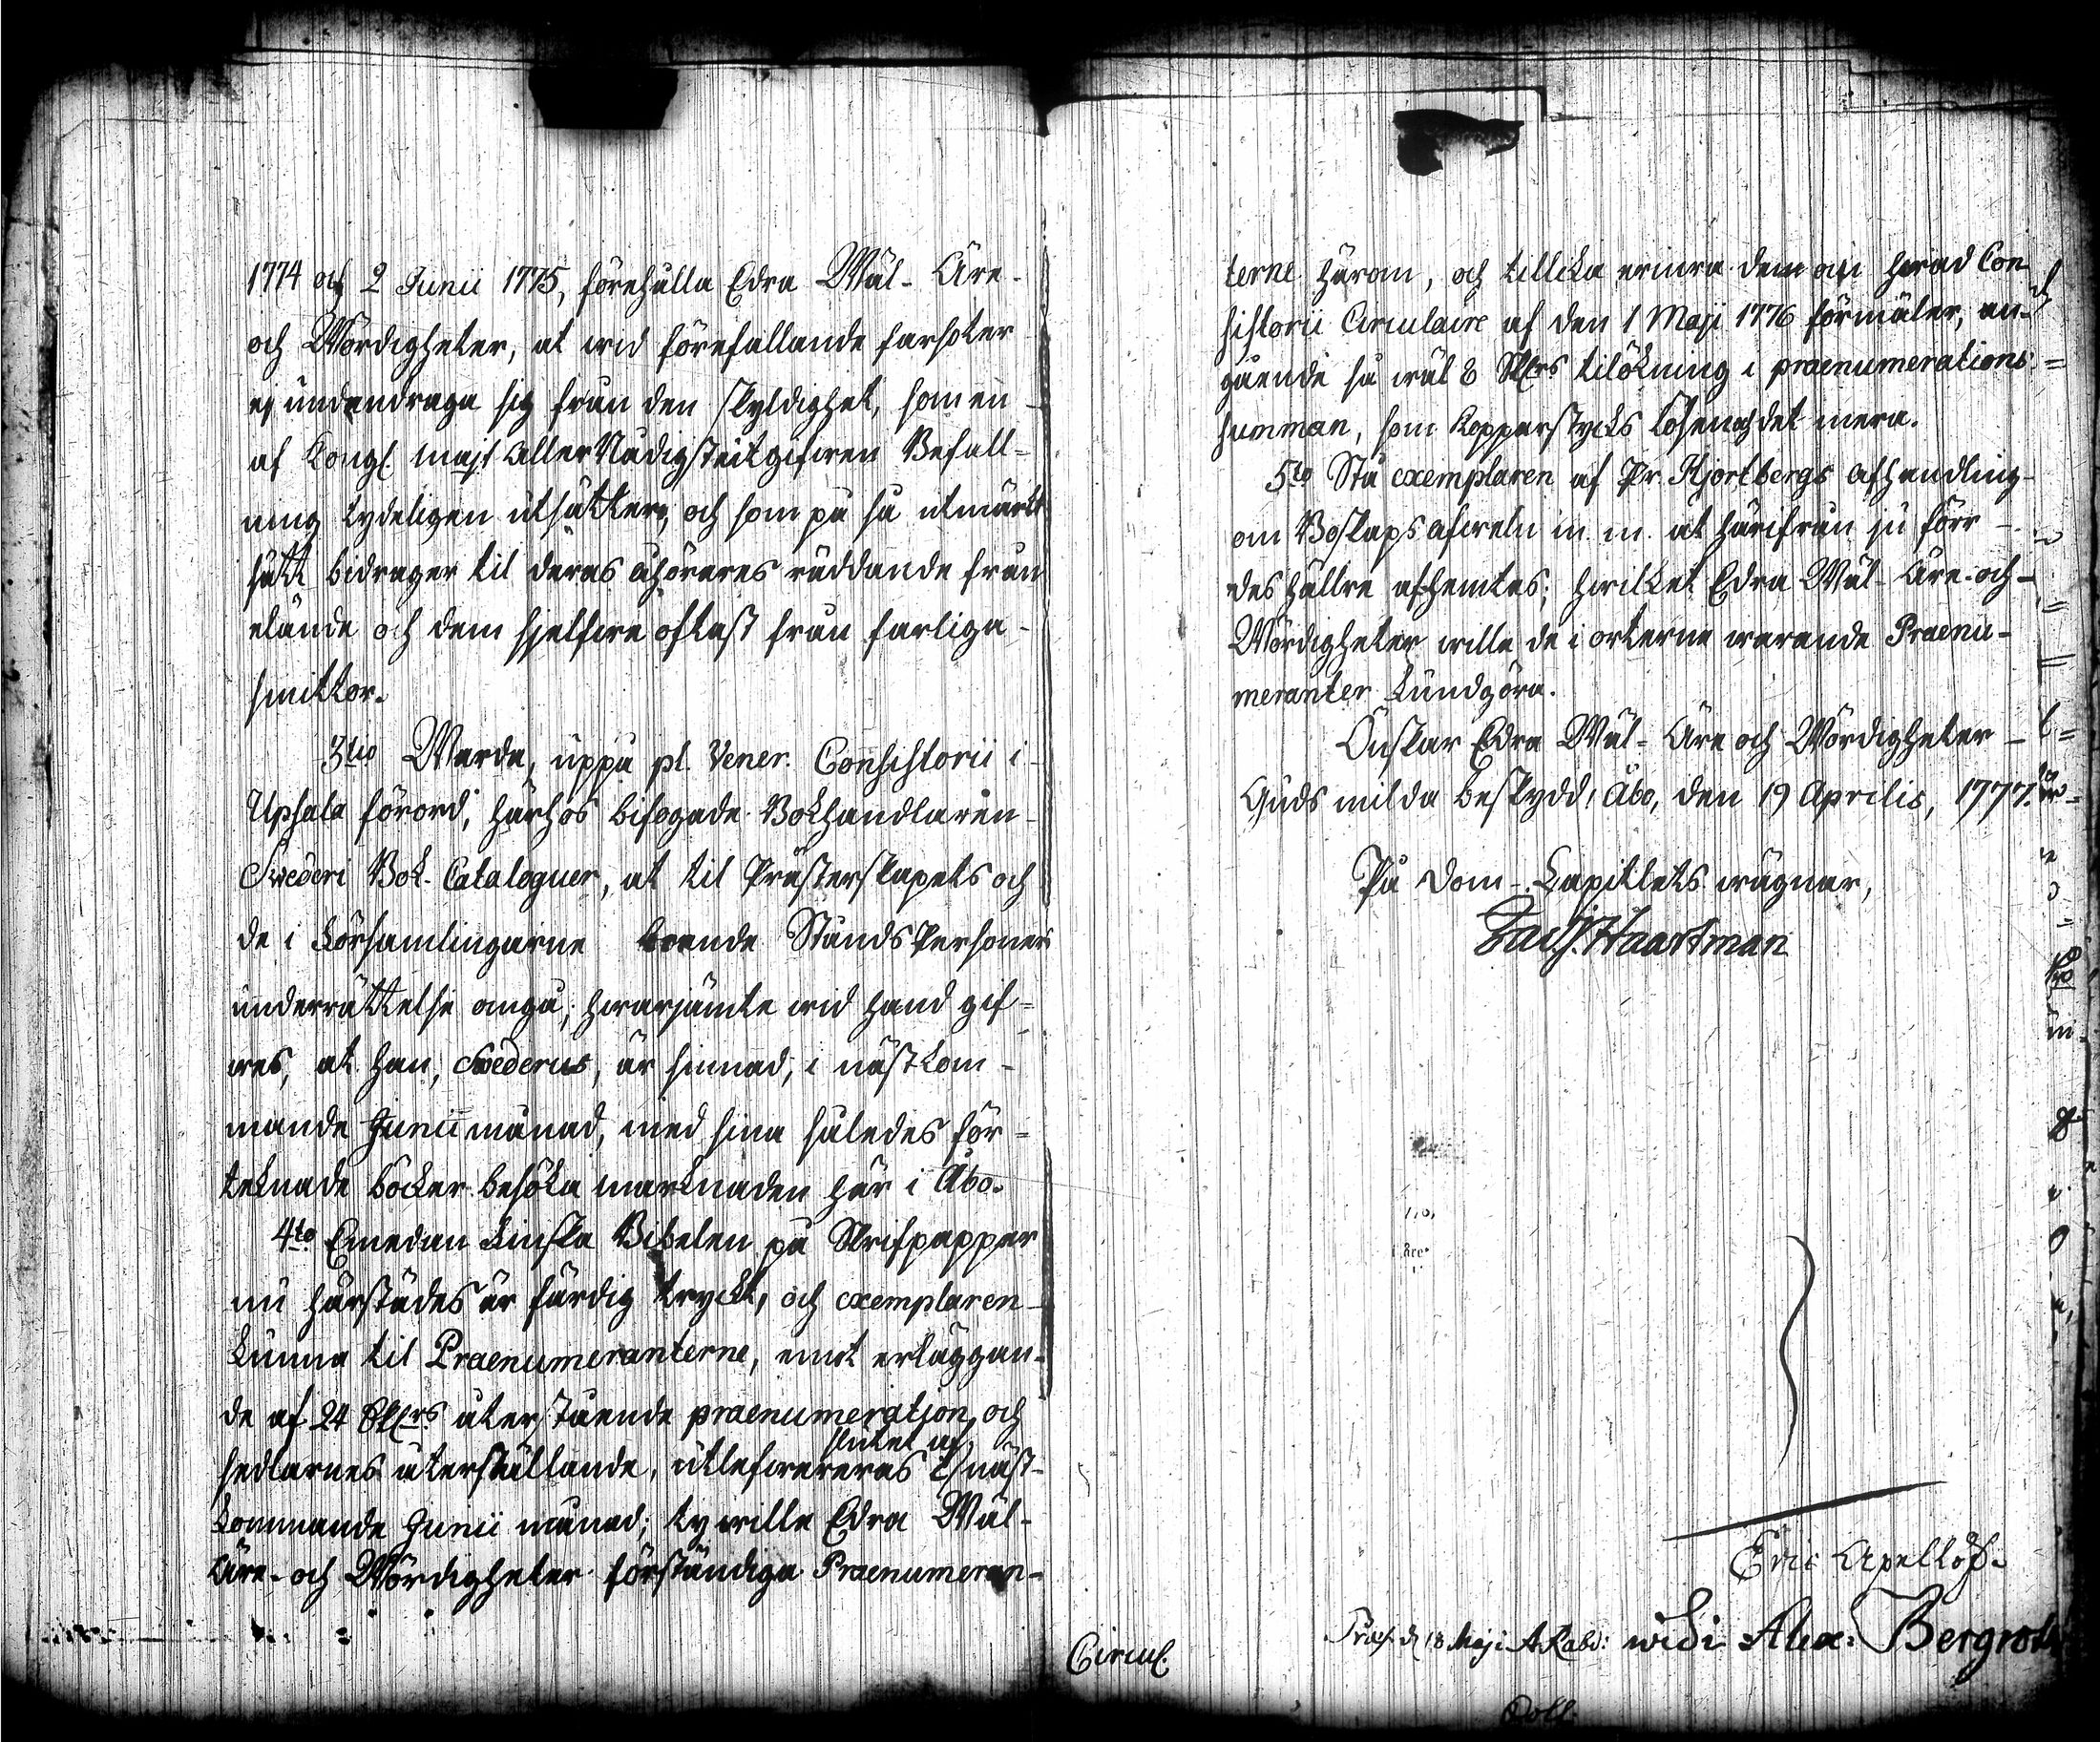 1774 och 2 Junii 1775, förehålla Edra Wäl- Äre-
och Wördigheter, at wid förefallande farsoter
ej undandraga sig från den skyldighet, som en
af Kongl. Majt Aller Nådigst utgifwen Befall-
ning tydeligen utsätter, och som på så utmärkt
sätt bidrager til deras åhörares räddande från
elände och dem sjelfwe oftast från farliga
smittor.
3tio Warda, uppå pl. Vener. Consistorii i
Upsala förord, härhos bifogade Bokhandlaren
Swederi Bok-Cataloguer, at til Prästerskapets och
de i Församlingarne boende Stånds Personers
underrättelse ; hwarjämte wid hand gif-
wes, at han, Swederus, är sinnad, i nästkom-
mande Junii månad, med sina således för-
teknade böcker besöka marknaden här i Åbo.
4to Emedan Finska Bibelen på Skrifpapper
nu härstädes är färdig tryckt, och exemplaren
kunna til Praenumeranterne, emot erläggan-
de af 24 Sklrs återstående praenumeration och
slutet af
sedlarnes återställande, utlefwereras i näst-
kommande Junii månad; ty wille Edra Wäl-
Äre- och Wördigheter förständiga Praenumeran-
terne härom, och tillika erinra dem om hwad Con
sistorii Circulaire af den 1 Maji 1776 förmäler, an-
gående så wäl 8 Sklrs tilökning i praenumerations
summan, som Kopparstycks lösen och det mera.
5to Stå exemplaren af Pr. Hjortbergs afhandling
om Boskaps afweln m. m. at härifrån ju förr
des hällre afhemtas; hwilket Edra Wäl- Äre- och
Wördigheter wille de i orterne warande Praenu-
meranter kundgöra.
Önskar Edra Wäl- Äre och Wördigheter
Guds milda beskydd! Åbo, den 19 Aprilis, 1777.
På Dom-Capitlets wägnar,
Haartman
Eric Apellöf.
d 18 Maji widi Alex: Bergroth
Circul.